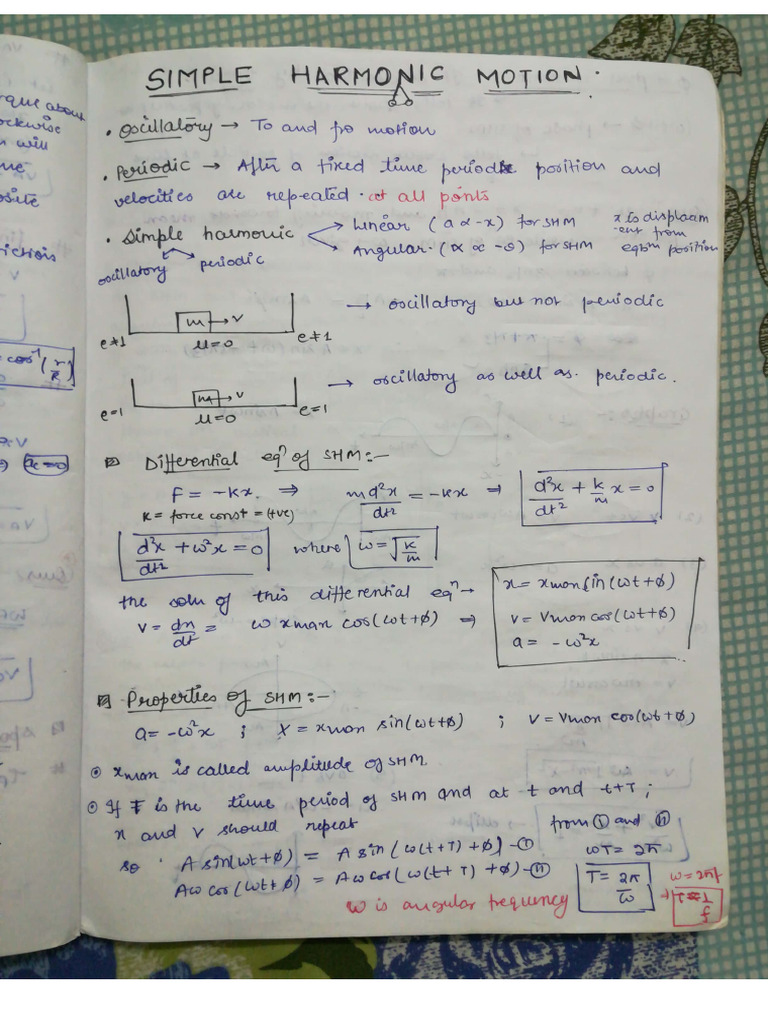 SIMPLE HARMONIC MOTION
• Oscillatory → To and fro motion
• Periodic → After a fixed time period position and
velocities are repeated. at all points
• Simple harmonic
Linear (a α -x) for SHM
Angular. (α ∝ -θ) for SHM
x is displacem
-ent from
eqbm position
oscillatory periodic
m → v
e≠1 μ=0 e≠1
→ oscillatory but not periodic
m → v
e=1 μ=0 e=1
→ oscillatory as well as. periodic.
Differential eqn of SHM:-
F = -kx. ⇒ md²x/dt² = -kx ⇒ d²x/dt² + k/m x = 0
K = force const = (+ve)
d²x/dt² + ω²x = 0 where ω = √(K/m)
the soln of this differential eqn →
x = xmax sin(ωt+ϕ)
v = dx/dt = ω xmax cos(ωt+ϕ) ⇒
v = Vmax cos(ωt+ϕ)
a = -ω²x
Properties of SHM:-
a = -ω²x ; X = xmax sin(ωt+ϕ) ; V = Vmax cos(ωt+ϕ)
xmax is called amplitude of SHM.
If T is the time period of SHM and at t and t+T ;
x and v should repeat
from (i) and (ii)
so A sin(ωt+ϕ) = A sin(ω(t+T)+ϕ) - (i)
ωT = 2π
Aω cos(ωt+ϕ) = Aω cos(ω(t+T)+ϕ) - (ii)
T = 2π/ω
ω = 2πf
ω is angular frequency
rque about
ockwise
n will
osite
riction